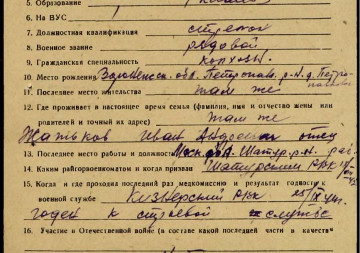 5. Образование
6. На ВУС
7. Должностная квалификация стрелок
8. Военное звание рядовой
9. Гражданская специальность колхозн.
10. Место рождения Воронежск. обл. Петропав. р-н. д. Петропавловка
11. Последнее место жительства там же
12. Где проживает в настоящее время семья (фамилия, имя и отчество жены или
родителей и точный их адрес) там же
Иван отец
13. Последнее место работы и должность Моск. обл. Шатур. р-н. раб.
14. Каким райгорвоенкоматом и когда призван Шатурским РВК
15. Когда и где проходил последний раз медкомиссию и результат годности к
военной службе Кизнерский РВК
годен к строевой службе
16. Участие в Отечественной войне (в составе какой последней части в качеств